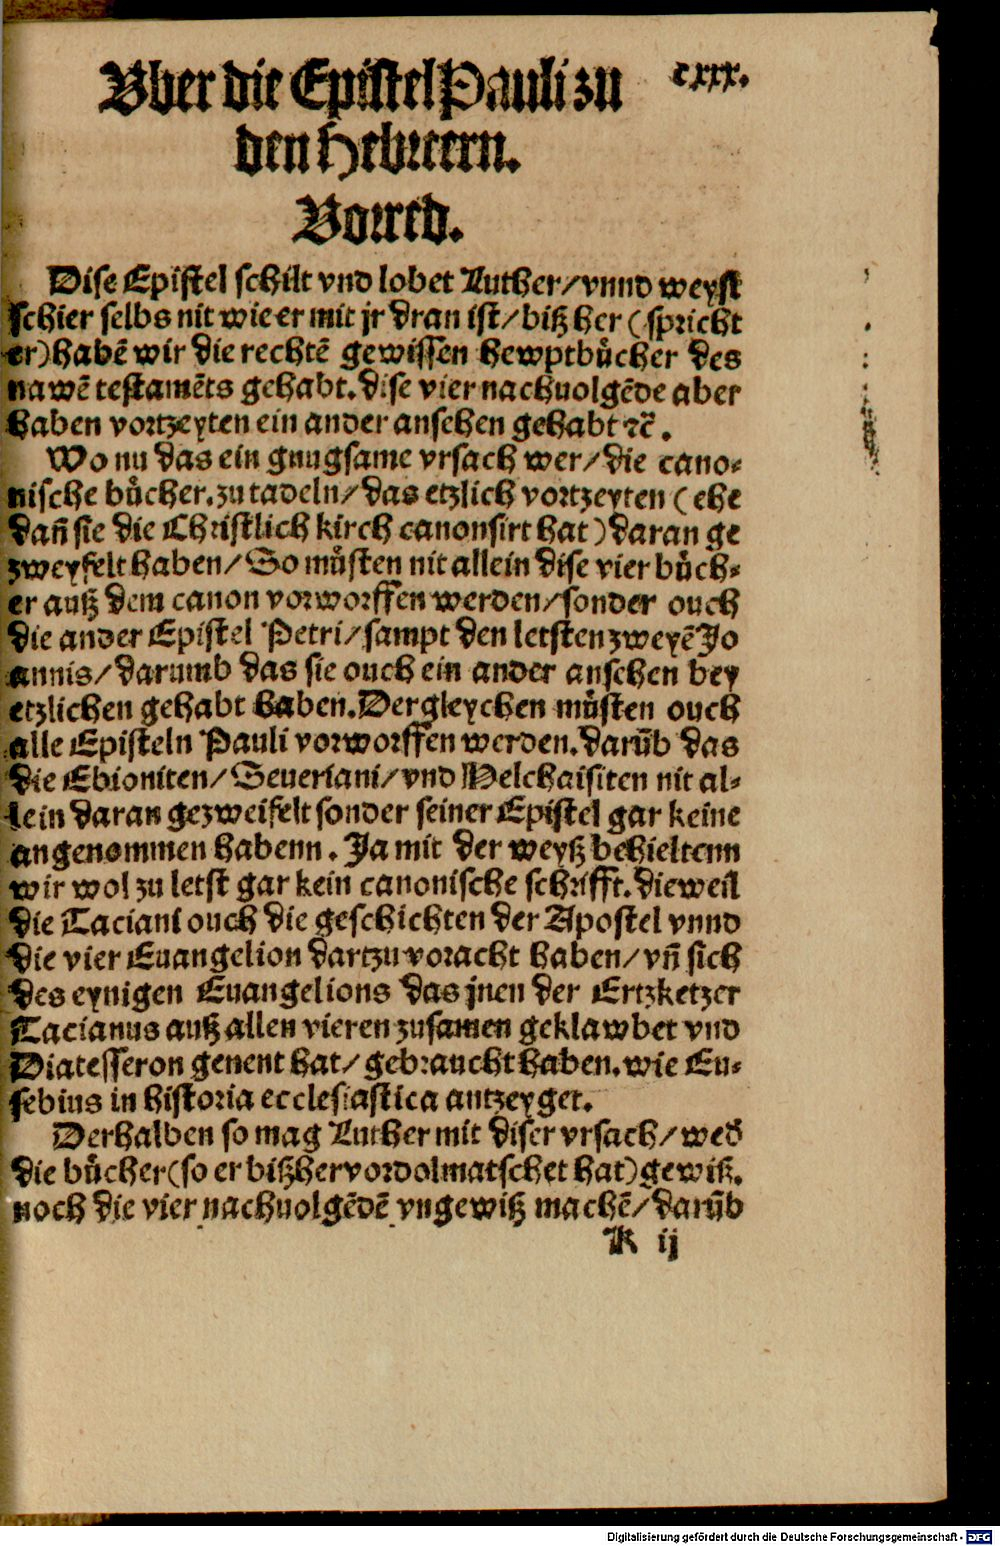 Vber die Epistel Pauli zu cxxx.
den Hebreern.
Vorred.
Dise Epistel schilt vnd lobet Luther/ vnnd weyst
schier selbs nit wie er mit jr dran ist/ bitz her (spricht
er) habē wir die rechtē gewissen hewptbücher des
nawē testamēts gehabt. dise vier nachuolgēde aber
haben vortzeyten ein ander ansehen gehabt ꝛc̄.
Wo nu das ein gnugsame vrsach wer/ die cano⸗
nische bücher. zu tadeln/ das etzlich vortzeyten (ehe
dañ sie die Christlich kirch canonsirt hat) daran ge
zweyfelt haben/ So müsten nit allein dise vier büch⸗
er autz dem canon vorworffen werden/ sonder ouch
die ander Epistel Petri/ sampt den letsten zweyē Jo
annis/ darumb das sie ouch ein ander ansehen bey
etzlichen gehabt haben. Dergleychen müsten ouch
alle Episteln Pauli vorworffen werden. darūb das
die Ebioniten/ Seueriani/ vnd Helchaisiten nit al⸗
lein daran gezweifelt sonder seiner Epistel gar keine
angenommen habenn. Ja mit der weytz behieltenn
wir wol zu letst gar kein canonische schrifft. dieweil
die Taciani ouch die geschichten der Apostel vnnd
die vier Euangelion dartzu voracht haben/ vñ sich
des eynigen Euangelions das jnen der Ertzketzer
Tacianus autz allen vieren zusamen geklawbet vnd
Diatesseron genent hat/ gebraucht haben. wie Eu⸗
sebius in historia ecclesiastica antzeyget.
Derhalben so mag Luther mit diser vrsach/ wed̄
die bücher (so er bitzher vordolmatschet hat) gewitz.
noch die vier nachuolgēdē vngewitz machē/ darūb
K ij
Digitalisierung gefördert durch die Deutsche Forschungsgemeinschaft - DFG